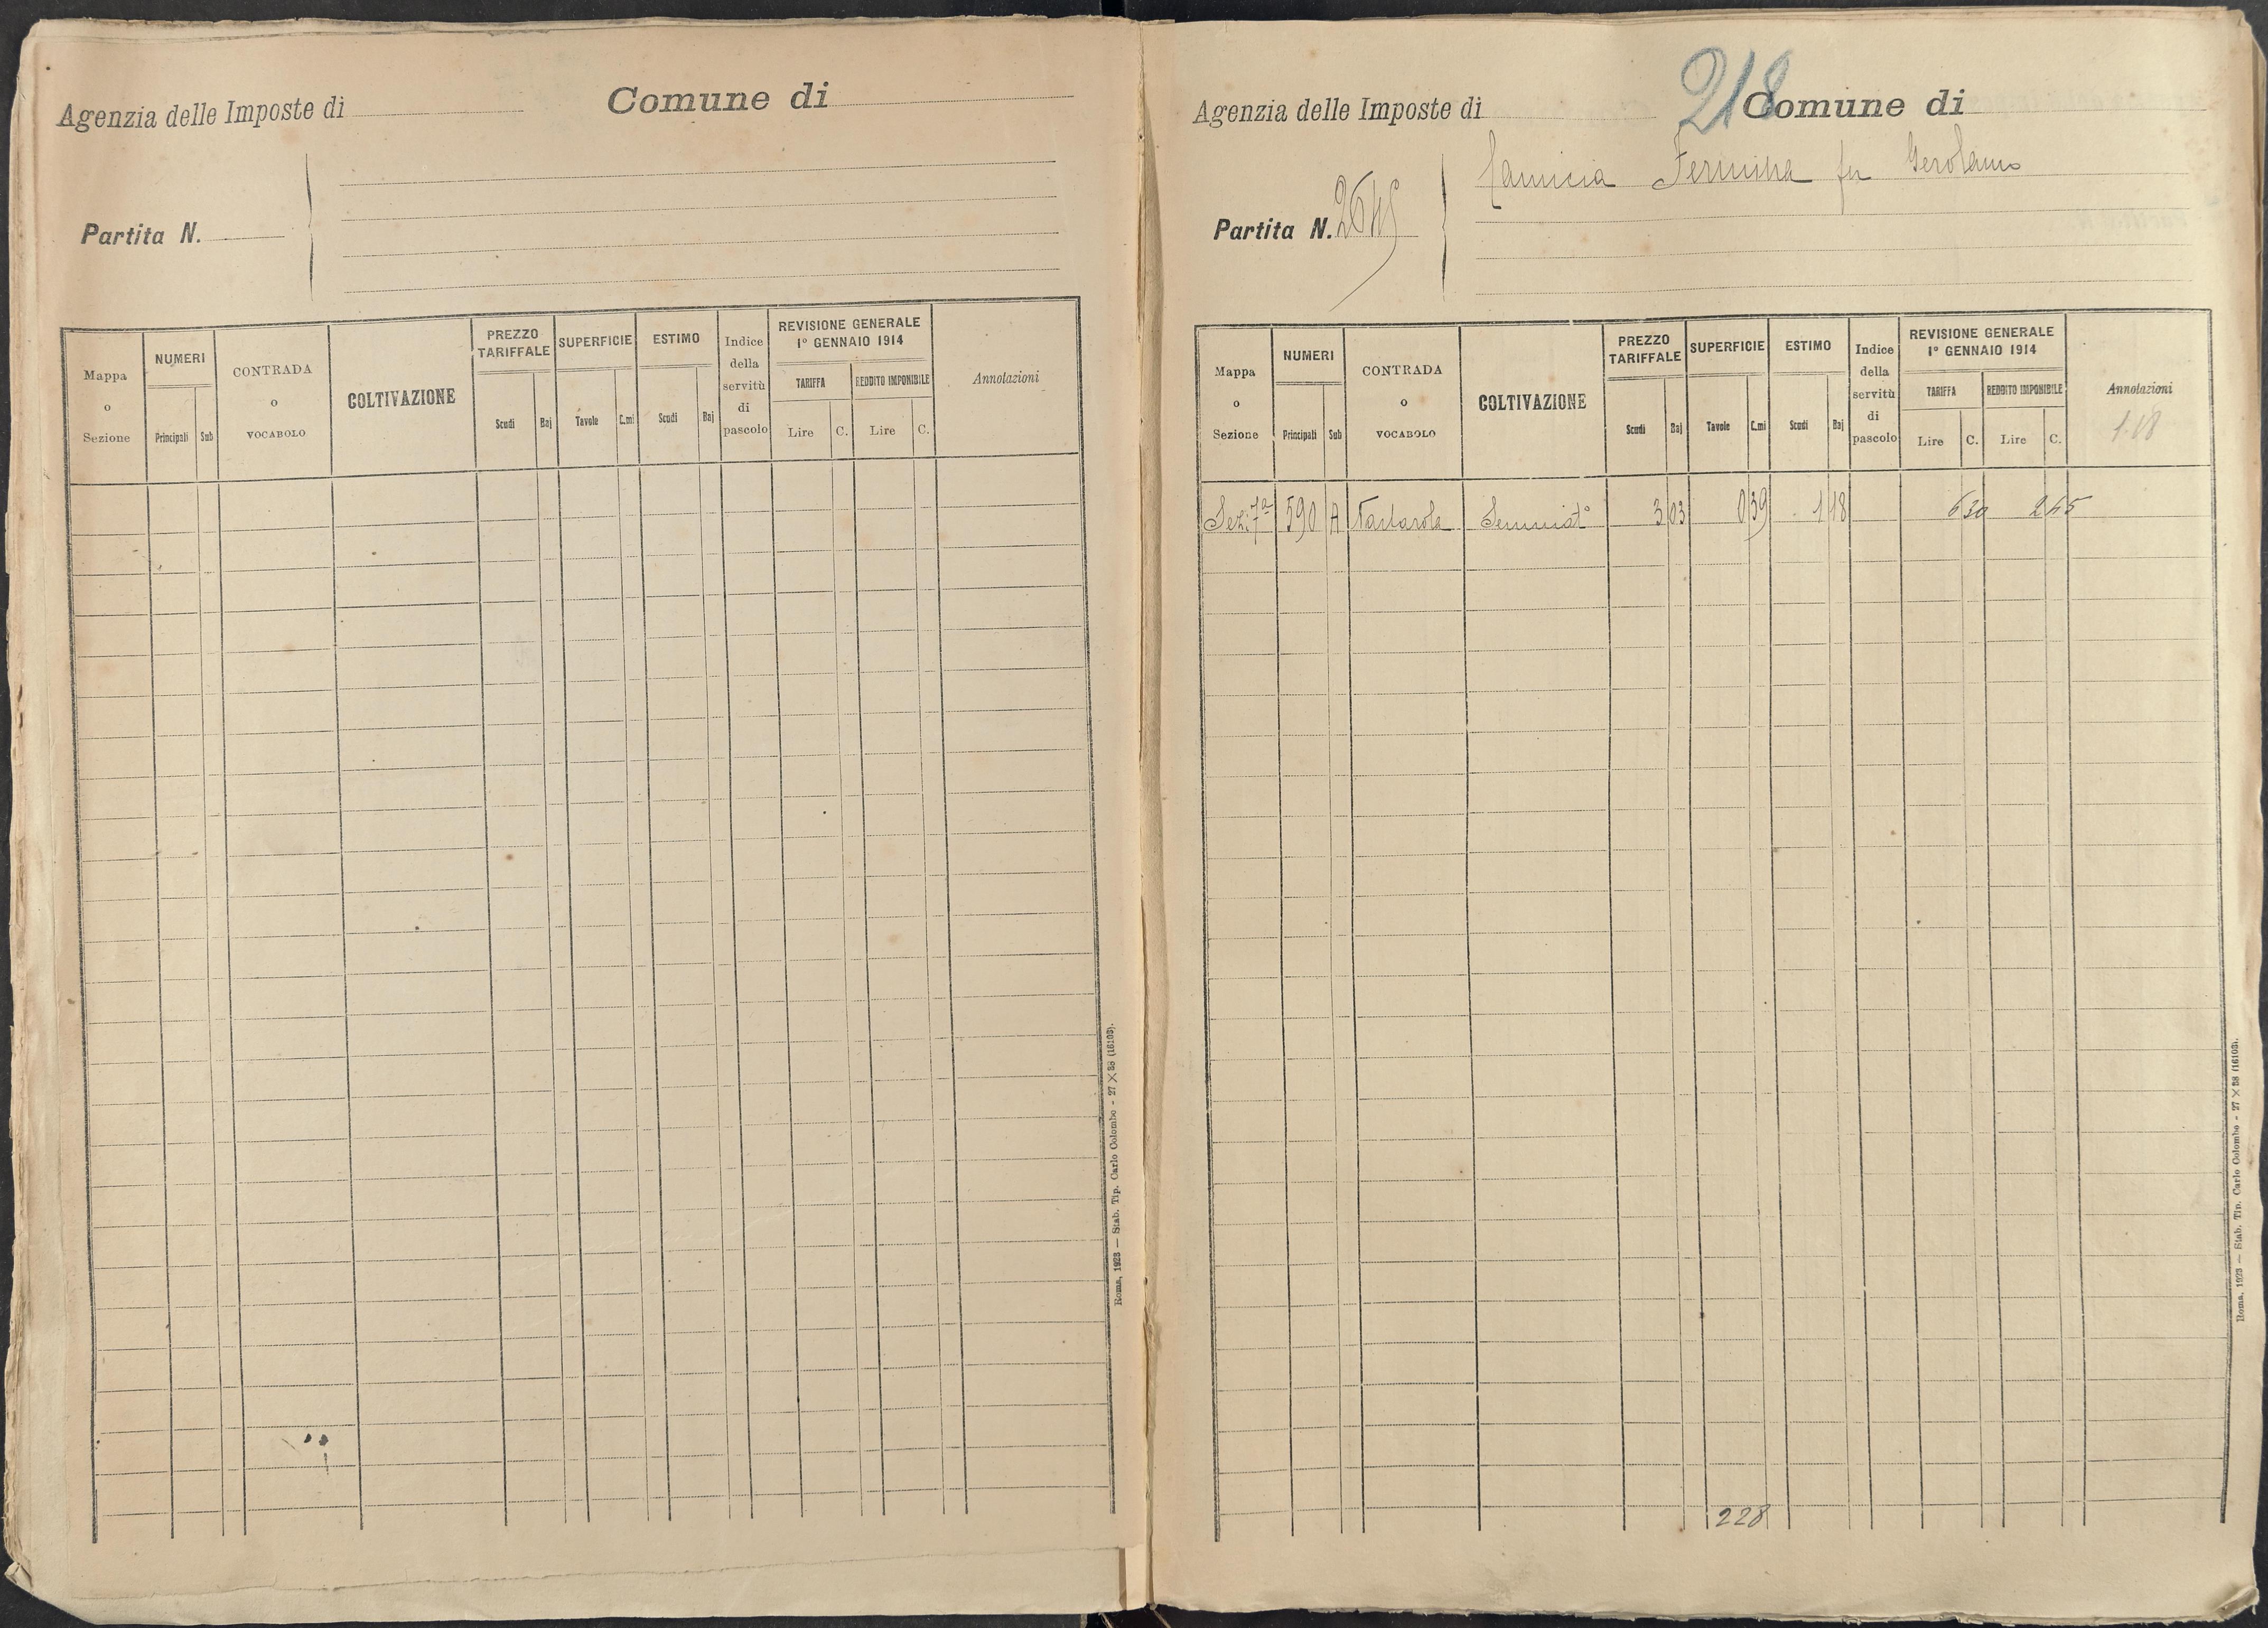 Agenzia delle Imposte di
Comune di
Partita N.
Mappa o Sezione
NUMERI
Principali
Sub
CONTRADA o VOCABOLO
COLTIVAZIONE
PREZZO TARIFFALE
Scudi
Baj
SUPERFICIE
Tavole
C.mi
ESTIMO
Scudi
Baj
Indice della servitù di pascolo
REVISIONE GENERALE
1° GENNAIO 1914
TARIFFA
Lire
C.
REDDITO IMPONIBILE
Lire
C.
Annotazioni
Roma, 1923 — Stab. Tip. Carlo Colombo - 27 X 38 (16103).
218
Agenzia delle Imposte di
Comune di
Camicia Fermina fu Gerolamo
Partita N.
Mappa o Sezione
NUMERI
Principali
Sub
CONTRADA o VOCABOLO
COLTIVAZIONE
PREZZO TARIFFALE
Scudi
Baj
SUPERFICIE
Tavole
C.mi
ESTIMO
Scudi
Baj
Indice della servitù di pascolo
REVISIONE GENERALE
1° GENNAIO 1914
TARIFFA
Lire
C.
REDDITO IMPONIBILE
Lire
C.
Annotazioni
1.18
Sez: 7ª 590 A Seminat° 3 03 0 39 1 18 6 30 2 45
228
Roma, 1923 — Stab. Tip. Carlo Colombo - 27 X 38 (16103).